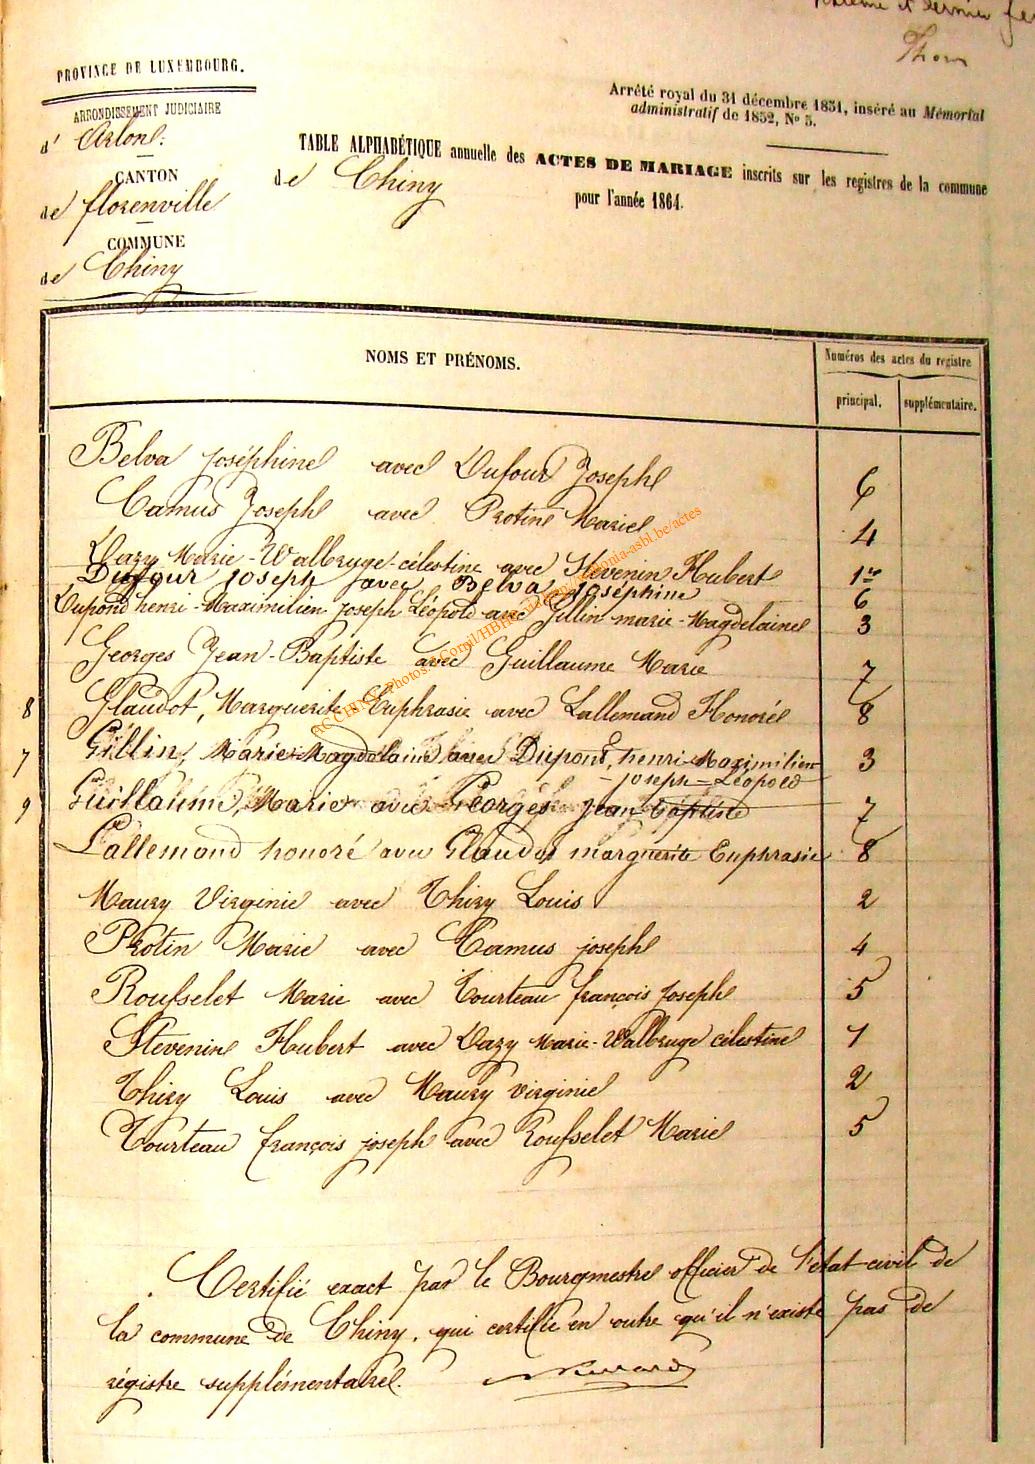 dernier
Thom
PROVINCE DE LUXEMBOURG.
ARRONDISSEMENT JUDICIAIRE
d' Arlon.
CANTON
de florenville
COMMUNE
de Chiny
Arrêté royal du 31 décembre 1851, inséré au Mémorial
administratif de 1852, No 5.
TABLE ALPHABÉTIQUE annuelle des ACTES DE MARIAGE inscrits sur les registres de la commune
de Chiny
pour l'année 1864.
NOMS ET PRÉNOMS.
Numéros des actes du registre
principal. supplémentaire.
Belva Joséphine avec Dufour Joseph 6
Camus Joseph avec Protin Marie 4
Dazy Marie-Walbruge-célestine avec Stevenin Hubert 1er
Dufour joseph avec Belva joséphine 6
Dupond henri-Maximilien joseph Léopold avec Gillin marie-Magdelaine 3
Georges Jean-Baptiste avec Guillaume Marie 7
8 Glaudot, Marguerite Euphrasie avec Lallemand Honoré 8
7 Gillin, Marie-Magdelaine avec Dupond, henri-Maximilien 3
joseph-Léopold
9 Guillaume, Marie avec Georges jean-baptiste 7
Lallemand honoré avec Glaudot marguerite Euphrasie 8
Maury Virginie avec Thiry Louis 2
Protin Marie avec Camus joseph 4
Rousselet Marie avec Tourteau françois Joseph 5
Stevenin Hubert avec Dazy Marie-Walbruge célestine 1
Thiry Louis avec Maury virginie 2
Tourteau françois joseph avec Rousselet Marie 5
Certifié exact par le Bourgmestre officier de l'état-civil de
la commune de Chiny, qui certifie en outre qu'il n'existe pas de
régistre supplémentaire.